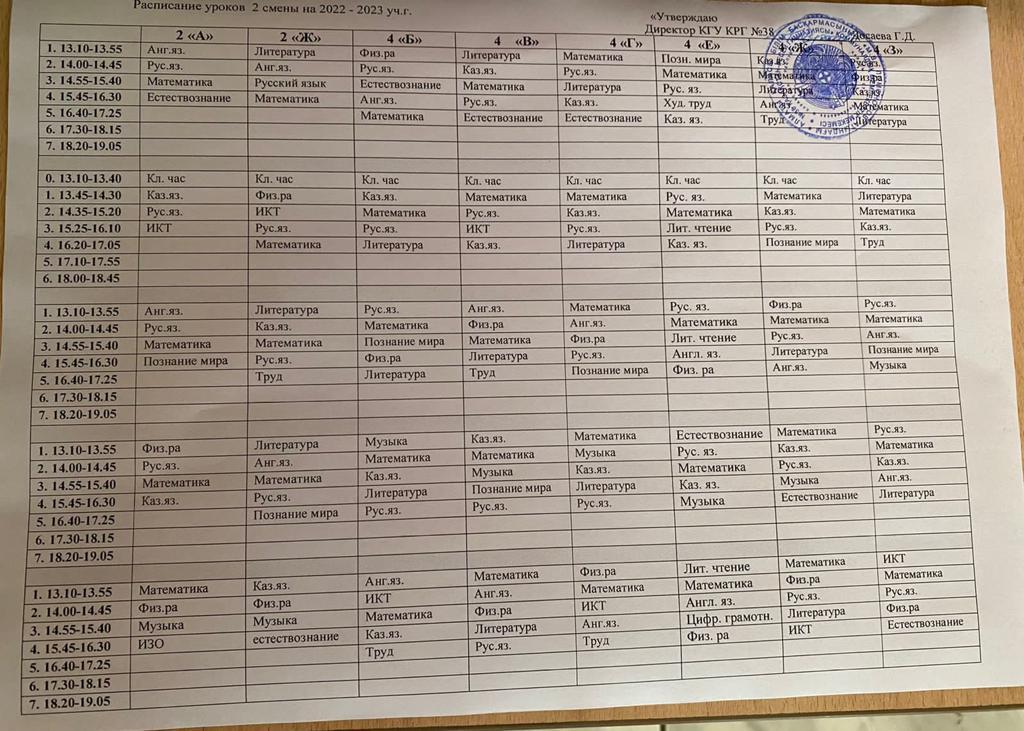 Расписание уроков 2 смены на 2022 - 2023 уч.г.
«Утверждаю
Директор КГУ КРГ №38 Досаева Г.Д.
2 «А» 2 «Ж» 4 «Б» 4 «В» 4 «Г» 4 «Е» 4 «Ж» 4 «З»
1. 13.10-13.55 Анг.яз. Литература Физ.ра Литература Математика Позн. мира Каз.яз. Рус.яз.
2. 14.00-14.45 Рус.яз. Анг.яз. Рус.яз. Каз.яз. Рус.яз. Математика Математика Физ.ра
3. 14.55-15.40 Математика Русский язык Естествознание Математика Литература Рус. яз. Литература Каз.яз.
4. 15.45-16.30 Естествознание Математика Анг.яз. Рус.яз. Каз.яз. Худ. труд Анг.яз. Математика
5. 16.40-17.25 Математика Естествознание Естествознание Каз. яз. Труд Литература
6. 17.30-18.15
7. 18.20-19.05
0. 13.10-13.40 Кл. час Кл. час Кл. час Кл. час Кл. час Кл. час Кл. час Кл. час
1. 13.45-14.30 Каз.яз. Физ.ра Каз.яз. Математика Математика Рус. яз. Математика Литература
2. 14.35-15.20 Рус.яз. ИКТ Математика Рус.яз. Каз.яз. Математика Каз.яз. Математика
3. 15.25-16.10 ИКТ Рус.яз. Рус.яз. ИКТ Рус.яз. Лит. чтение Рус.яз. Каз.яз.
4. 16.20-17.05 Математика Литература Каз.яз. Литература Каз. яз. Познание мира Труд
5. 17.10-17.55
6. 18.00-18.45
1. 13.10-13.55 Анг.яз. Литература Рус.яз. Анг.яз. Математика Рус. яз. Физ.ра Рус.яз.
2. 14.00-14.45 Рус.яз. Каз.яз. Математика Физ.ра Анг.яз. Математика Математика Математика
3. 14.55-15.40 Математика Математика Познание мира Математика Физ.ра Лит. чтение Рус.яз. Анг.яз.
4. 15.45-16.30 Познание мира Рус.яз. Физ.ра Литература Рус.яз. Англ. яз. Литература Познание мира
5. 16.40-17.25 Труд Литература Труд Познание мира Физ. ра Анг.яз. Музыка
6. 17.30-18.15
7. 18.20-19.05
1. 13.10-13.55 Физ.ра Литература Музыка Каз.яз. Математика Естествознание Математика Рус.яз.
2. 14.00-14.45 Рус.яз. Анг.яз. Математика Математика Музыка Рус. яз. Каз.яз. Математика
3. 14.55-15.40 Математика Математика Каз.яз. Музыка Каз.яз. Математика Рус.яз. Каз.яз.
4. 15.45-16.30 Каз.яз. Рус.яз. Литература Познание мира Литература Каз. яз. Музыка Анг.яз.
5. 16.40-17.25 Познание мира Рус.яз. Рус.яз. Рус.яз. Музыка Естествознание Литература
6. 17.30-18.15
7. 18.20-19.05
1. 13.10-13.55 Математика Каз.яз. Анг.яз. Математика Физ.ра Лит. чтение Математика ИКТ
2. 14.00-14.45 Физ.ра Физ.ра ИКТ Анг.яз. Математика Математика Физ.ра Математика
3. 14.55-15.40 Музыка Музыка Математика Физ.ра ИКТ Англ. яз. Рус.яз. Рус.яз.
4. 15.45-16.30 ИЗО естествознание Каз.яз. Литература Анг.яз. Цифр. грамотн. Литература Физ.ра
5. 16.40-17.25 Труд Рус.яз. Труд Физ. ра ИКТ Естествознание
6. 17.30-18.15
7. 18.20-19.05